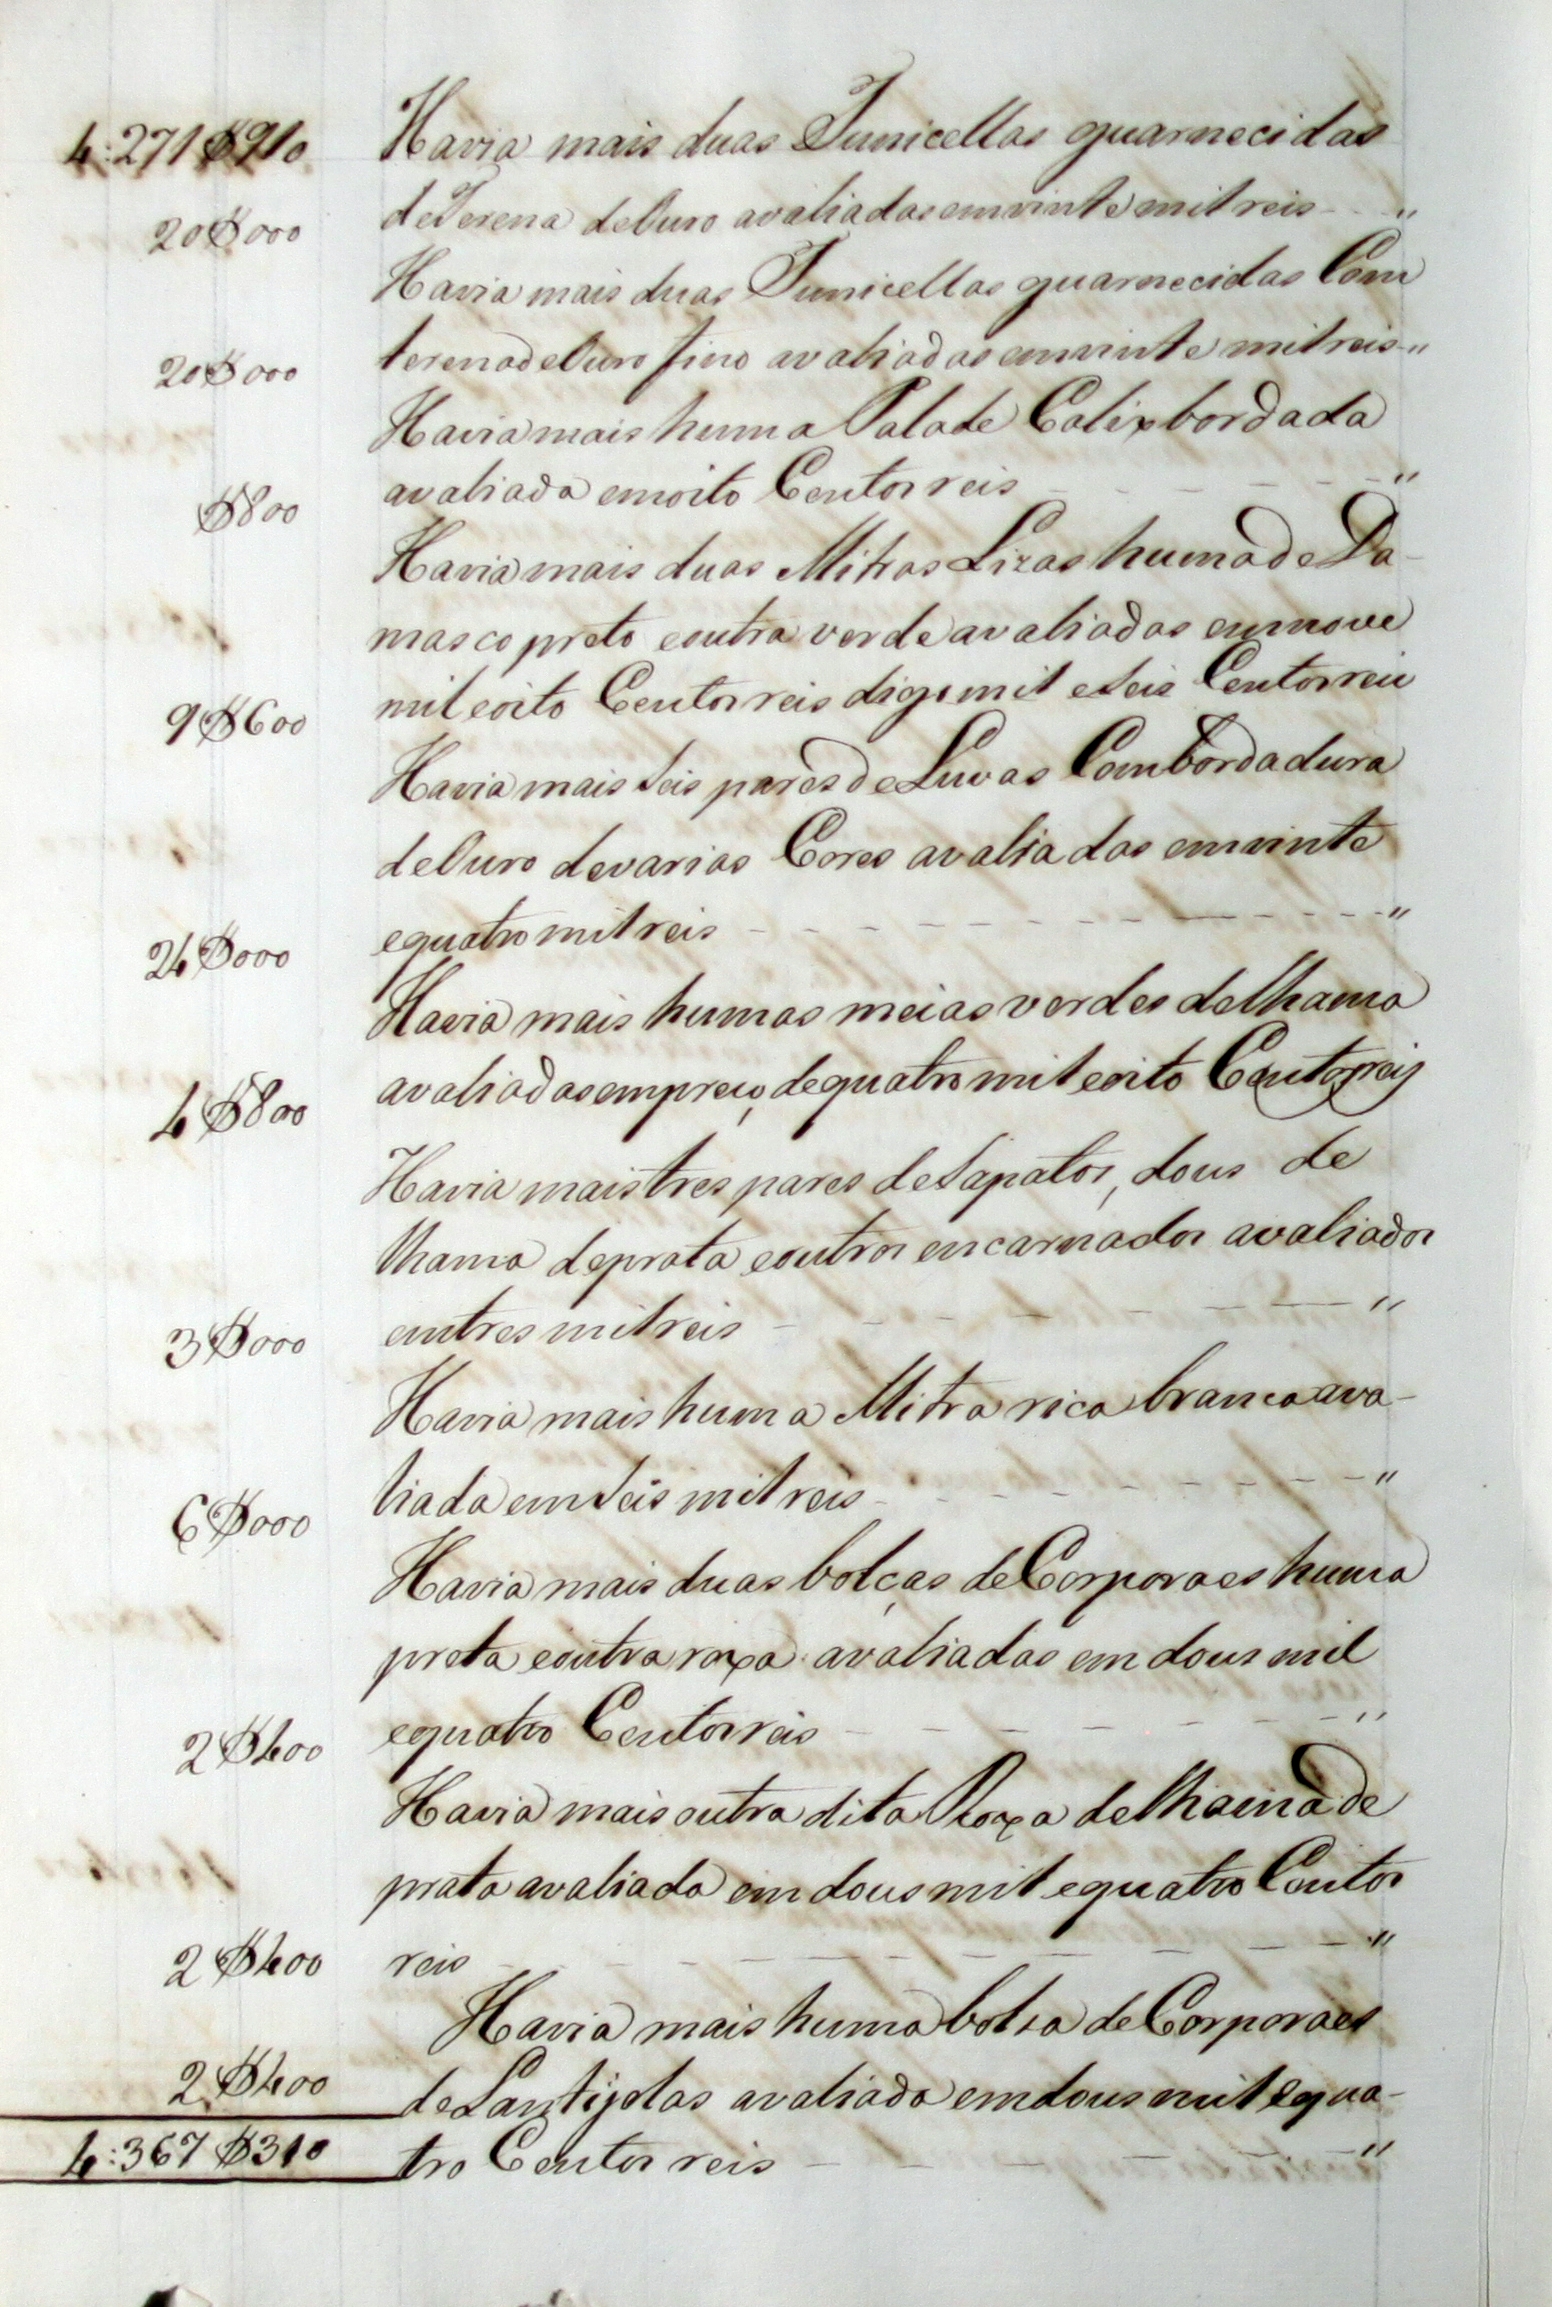 4:271$910 Havia mais duas Tunicellas guarnecidas
de Serena de Ouro avaliadas em vinte mil reis - - "
20$000
Havia mais duas Tunicellas guarnecidas Com
serena de Ouro fino avaliadas em vinte mil reis - "
20$000
Havia mais huma Pala de Calix bordada
avaliada em oito Centos reis - - - - - "
$800
Havia mais duas Mitras Lizas huma de Da-
masco preto e outra verde avaliadas em nove
mil e oito Centos reis digo mil e seis Centos reis
9$600
Havia mais seis pares de Luvas Com bordadura
de Ouro de varias Cores avaliadas em vinte
e quatro mil reis - - - - - - - - - "
24$000
Havia mais humas meias verdes de lhama
avaliadas em preço de quatro mil e oito Centos reis
4$800
Havia mais tres pares de sapatos, dous de
lhama de prata e outros encarnados avaliados
em tres mil reis - - - - - - - "
3$000
Havia mais huma Mitra rica branca ava-
liada em seis mil reis - - - - - - - "
6$000
Havia mais duas bolças de Corporaes huma
preta e outra roxa avaliadas em dous mil
e quatro Centos reis - - - - - - - "
2$400
Havia mais outra dita Roxa de lhama de
prata avaliada em dous mil e quatro Centos
2$400 reis - - - - - - - - - "
Havia mais huma bolsa de Corporaes
2$400 de Lantijolas avaliada em dous mil e qua-
4:367$310 tro Centos reis - - - - - "